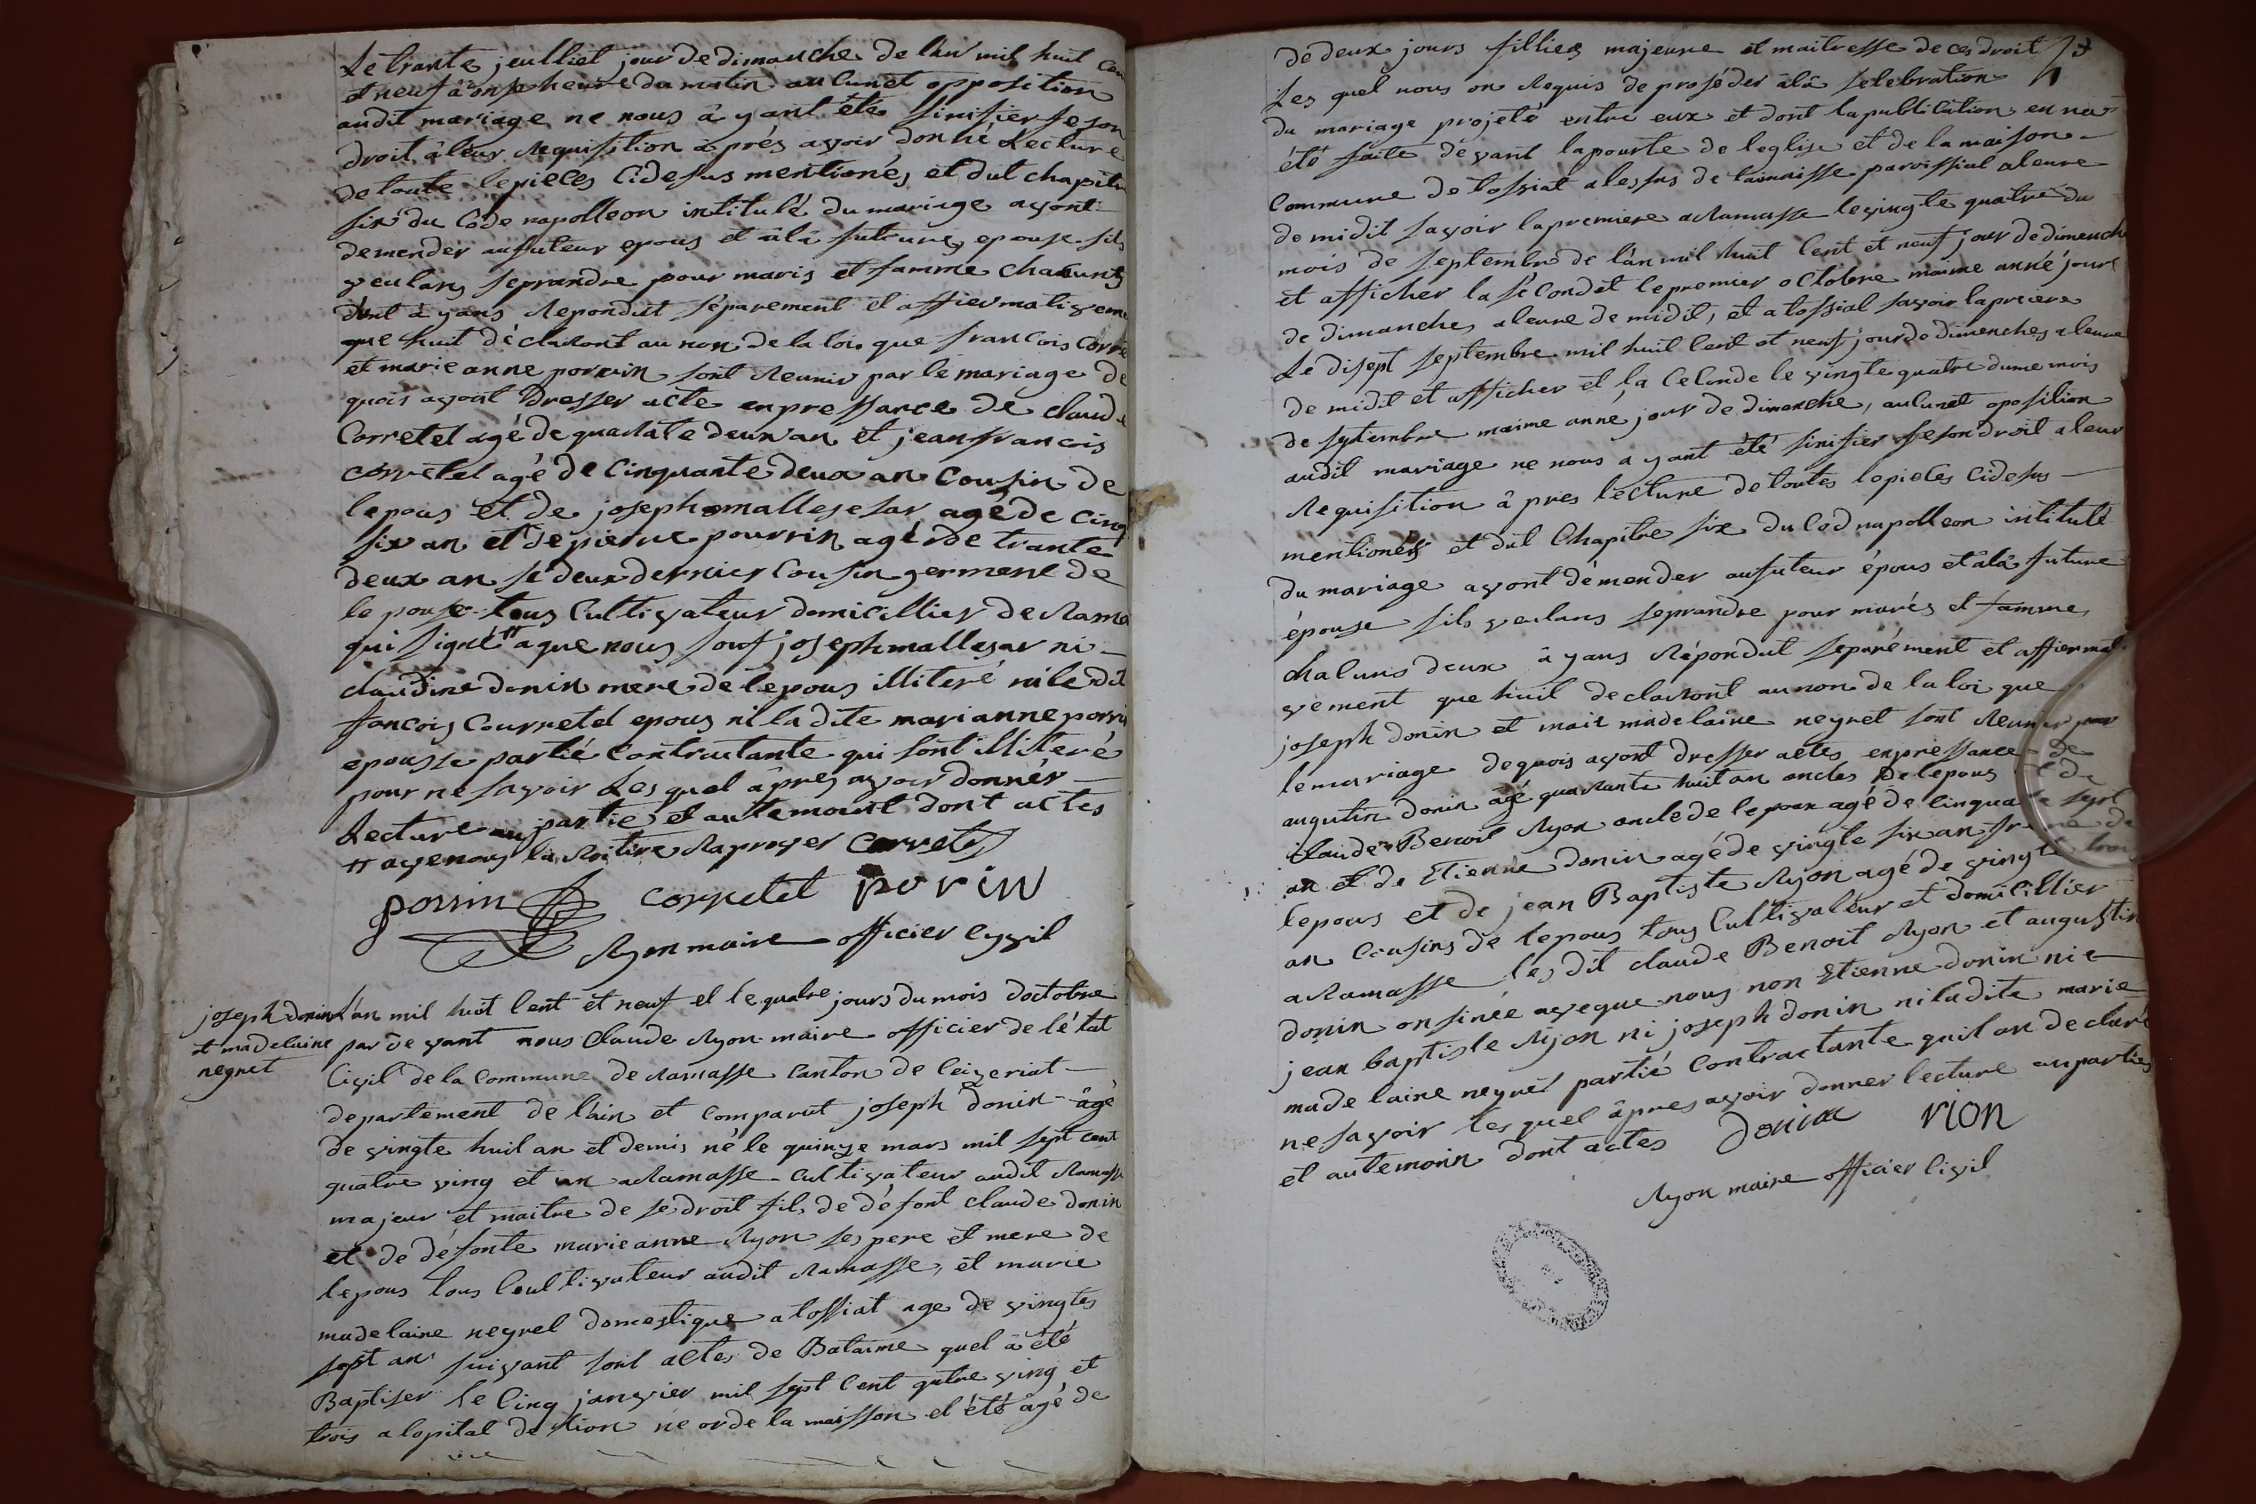 Le trante jeulliet jour de dimanche de l'an mil huit cen
et neuf à onse heure du matin aucunet opposition
audit mariage ne nous à yant été sinifier feson
droit à leur requisition àprés avoir donné Lecture
de toute lepieces cidesus mentionés et dut chapitre
six du Code napolleon intitulé du mariage avont
demender aufuteur epous et àlà futeure epouse sils
veulans seprandre pour maris et famme chacuns
dont à yans repondut séparement et affiermativeme
que huit déclaront au non de la loi que francois corre
et marie anne porrin sont reunis par le mariage de
quois avont dresser acte enpressance de claude
Corretel agé de quarante deux an et jean francois
corretel agé de cinquante deux an cousin de
lepous et de joseph mallesesar agé de cinq
six an et de pierre pourrin agé de trante
deux an se deux dernier cousin germene de
lepouse tous cultivateur domicillier de Rama
qui signé # aque nous souf joseph mallesar ni
claudine donin mere de lepous illiteré ni ledit
fancois Courretel epous ni la dite marianne porrin
epousse partié contractante qui sont illiteré
pour ne savoir Les quel àprés avoir donnér
Lecture au partie et autemoint dont actes
# avenous la
porrin corretel porin
Ryon maire officier cyvil
joseph donin
et madelaine
negret
L'an mil huit cent et neuf et le quatre jours du mois doctobre
par de vant nous Claude Ryon maire officier de l'état
Civil de la Commune de Ramasse canton de Ceizeriat
departement de l'ain et comparut joseph donin âgé
de vingte huit an et demis né le quinze mars mil sept cent
quatre ving et un aRamasse cultivateur audit Ramasse
majeur et maitre de se droit fils de défont claude donin
et de défonte marieanne Ryon ses pere et mere de
lepous tous Coultivateur audit Ramasse, et marie
madelaine neyret domestique a tossiat age de vingtes
sept an suivant sont actes de Bataime quel à été
Baptiser le Cinq janvier mil sept Cent quatre ving et
trois a lopital de Lion né or de la maisson et été âgé de
de deux jours fillies majeure et maitresse de ces droit
Les quel nous on requis de proséder àlâ selebration
du mariage projeté entre eux et dont la publication en na
été faite dévant lapourte de leglise et de la maison
Commune de tossiat alessus de lamaisse paroissial aleure
de midit savoir la premiere aRamasse le vingte quatre du
mois de septembre de làn mil huit Cent et neuf jour de dimench
et afficher la sécondet le premier octobre maime anné jour
de dimanche aleure de midit, et a tossial savoir lapreiere
Le disept septembre mil huit Cent et neuf jourde dimenches aleure
de midit et afficher et la Celonde le vingte quatre dume mois
de septembre maime anné jour de dimanche, aucunet oposition
audit mariage ne nous a yant été sinifier fesondroit aleur
Requisition à pres lecture de toutes lopieces cidesus
mentionés et dut Chapitre six du Cod napolleon intitulé
du mariage avont démender aufuteur épous et àlà future
épouse sils veulans seprandre pour marés et famme
chacuns deux à yans répondut séparément et affiermat
vement que huit declaront aunon de la loi que
joseph donin et marie madelaine neyret sont reunis par
le mariage dequois avont dresser actes enpressance de
augutin donin âgé quarante huit an oncles de lepous et de
claude Benoit Ryon oncle de lepoux agé de cinquante sept
an et de Etienne donin agé de vingte six an frere de
lepous et de jean Baptiste Ryon agé de vingte trois
an cousins de lepous tous Cultivateur et domicillier
aRamasse les dit claude Benoit Ryon et augustin
donin on sinée aveque nous non Etienne donin ni
jean baptiste Ryon ni joseph donin ni ladite marie
madelaine neyret partié Contractante quil on declaré
ne savoir les quel âpres avoir donner lecture au parties
et autemoin dont actes donin rion
Ryon maire officier Civil